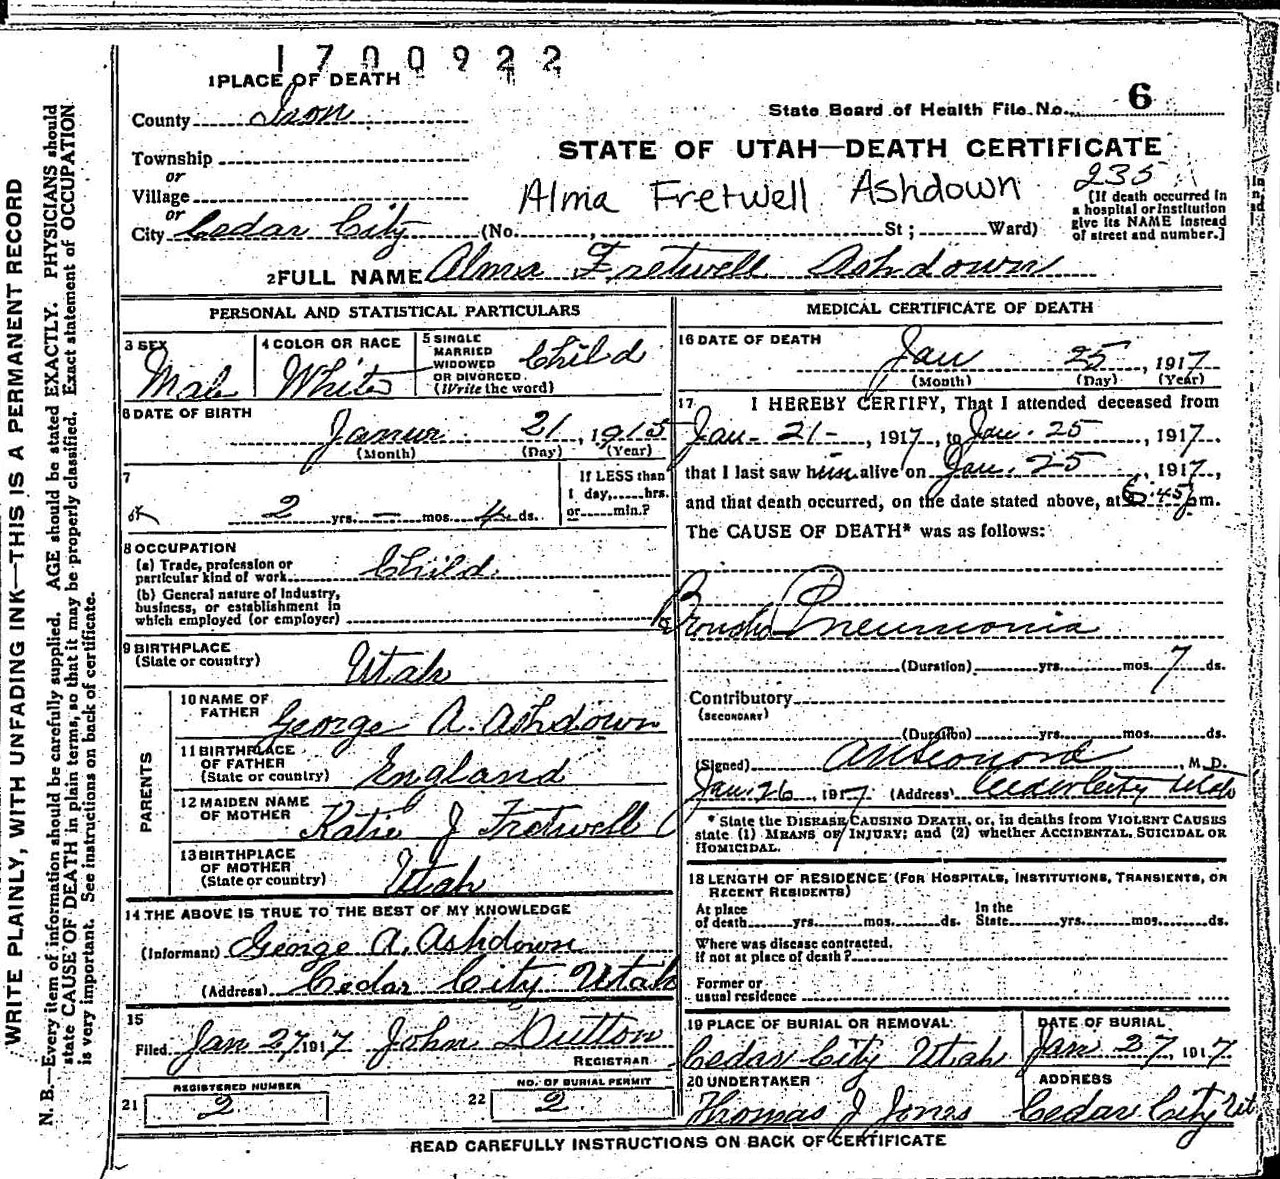 1700922
1 PLACE OF DEATH
County Iron
State Board of Health File No. 6
Township
or
STATE OF UTAH—DEATH CERTIFICATE
Village
Alma Fretwell Ashdown 235
or
City Cedar City (No. , St; Ward)
[If death occurred in
a hospital or institution
give its NAME instead
of street and number.]
2 FULL NAME Alma Fretwell Ashdown
PERSONAL AND STATISTICAL PARTICULARS
3 SEX
Male
4 COLOR OR RACE
White
5 SINGLE
MARRIED
WIDOWED
OR DIVORCED
(Write the word)
Child
6 DATE OF BIRTH
Janur 21, 1915
(Month) (Day) (Year)
7
2 yrs. — mos. 4 ds.
If LESS than
1 day, hrs.
or min.?
8 OCCUPATION
(a) Trade, profession or
particular kind of work Child
(b) General nature of Industry,
business, or establishment in
which employed (or employer)
9 BIRTHPLACE
(State or country)
Utah
PARENTS
10 NAME OF
FATHER George A. Ashdown
11 BIRTHPLACE
OF FATHER
(State or country) England
12 MAIDEN NAME
OF MOTHER Katie J Fretwell
13 BIRTHPLACE
OF MOTHER
(State or country) Utah
14 THE ABOVE IS TRUE TO THE BEST OF MY KNOWLEDGE
(Informant) George A. Ashdown
(Address) Cedar City Utah
15
Filed Jan 27 1917 John Dutton
REGISTRAR
REGISTERED NUMBER
21 2
NO. OF BURIAL PERMIT
22 2
MEDICAL CERTIFICATE OF DEATH
16 DATE OF DEATH
Jan 25, 1917
(Month) (Day) (Year)
17 I HEREBY CERTIFY, That I attended deceased from
Jan - 21 -, 1917, to Jan. 25, 1917.
that I last saw him alive on Jan. 25, 1917,
and that death occurred, on the date stated above, at 6:45 pm.
The CAUSE OF DEATH* was as follows:
Broncho Pneumonia
(Duration) yrs. mos. 7 ds.
Contributory
(SECONDARY)
(Duration) yrs. mos. ds.
(Signed) , M. D.
Jan. 26, 1917 (Address) Cedar City Utah
* State the DISEASE CAUSING DEATH, or, in deaths from VIOLENT CAUSES
state (1) MEANS OF INJURY; and (2) whether ACCIDENTAL, SUICIDAL OR
HOMICIDAL.
18 LENGTH OF RESIDENCE (FOR HOSPITALS, INSTITUTIONS, TRANSIENTS, OR
RECENT RESIDENTS)
At place In the
of death yrs. mos. ds. State yrs. mos. ds.
Where was disease contracted.
if not at place of death?
Former or
usual residence
19 PLACE OF BURIAL OR REMOVAL
Cedar City Utah
DATE OF BURIAL
Jan 27, 1917
20 UNDERTAKER
Thomas J Jones
ADDRESS
Cedar City Ut
READ CAREFULLY INSTRUCTIONS ON BACK OF CERTIFICATE
WRITE PLAINLY, WITH UNFADING INK—THIS IS A PERMANENT RECORD
N. B.—Every item of information should be carefully supplied. AGE should be stated EXACTLY. PHYSICIANS should
state CAUSE OF DEATH in plain terms, so that it may be properly classified. Exact statement of OCCUPATION
is very important. See instructions on back of certificate.